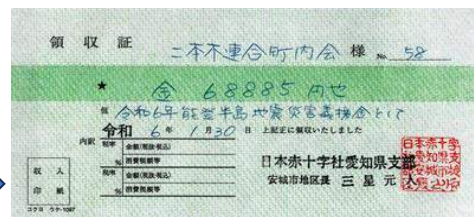 領収証 二本木連合町内会 様 No. 58
★ 金 68885 円也
但 令和6年能登半島地震災害義援金として
令和 6年 1月30日 上記正に領収いたしました
内訳
税率 金額(税抜・税込)
% 消費税額等
税率 金額(税抜・税込)
% 消費税額等
収入
印紙
日本赤十字社愛知県支部
安城市地区長 三星元人
コクヨ ウケ-1097